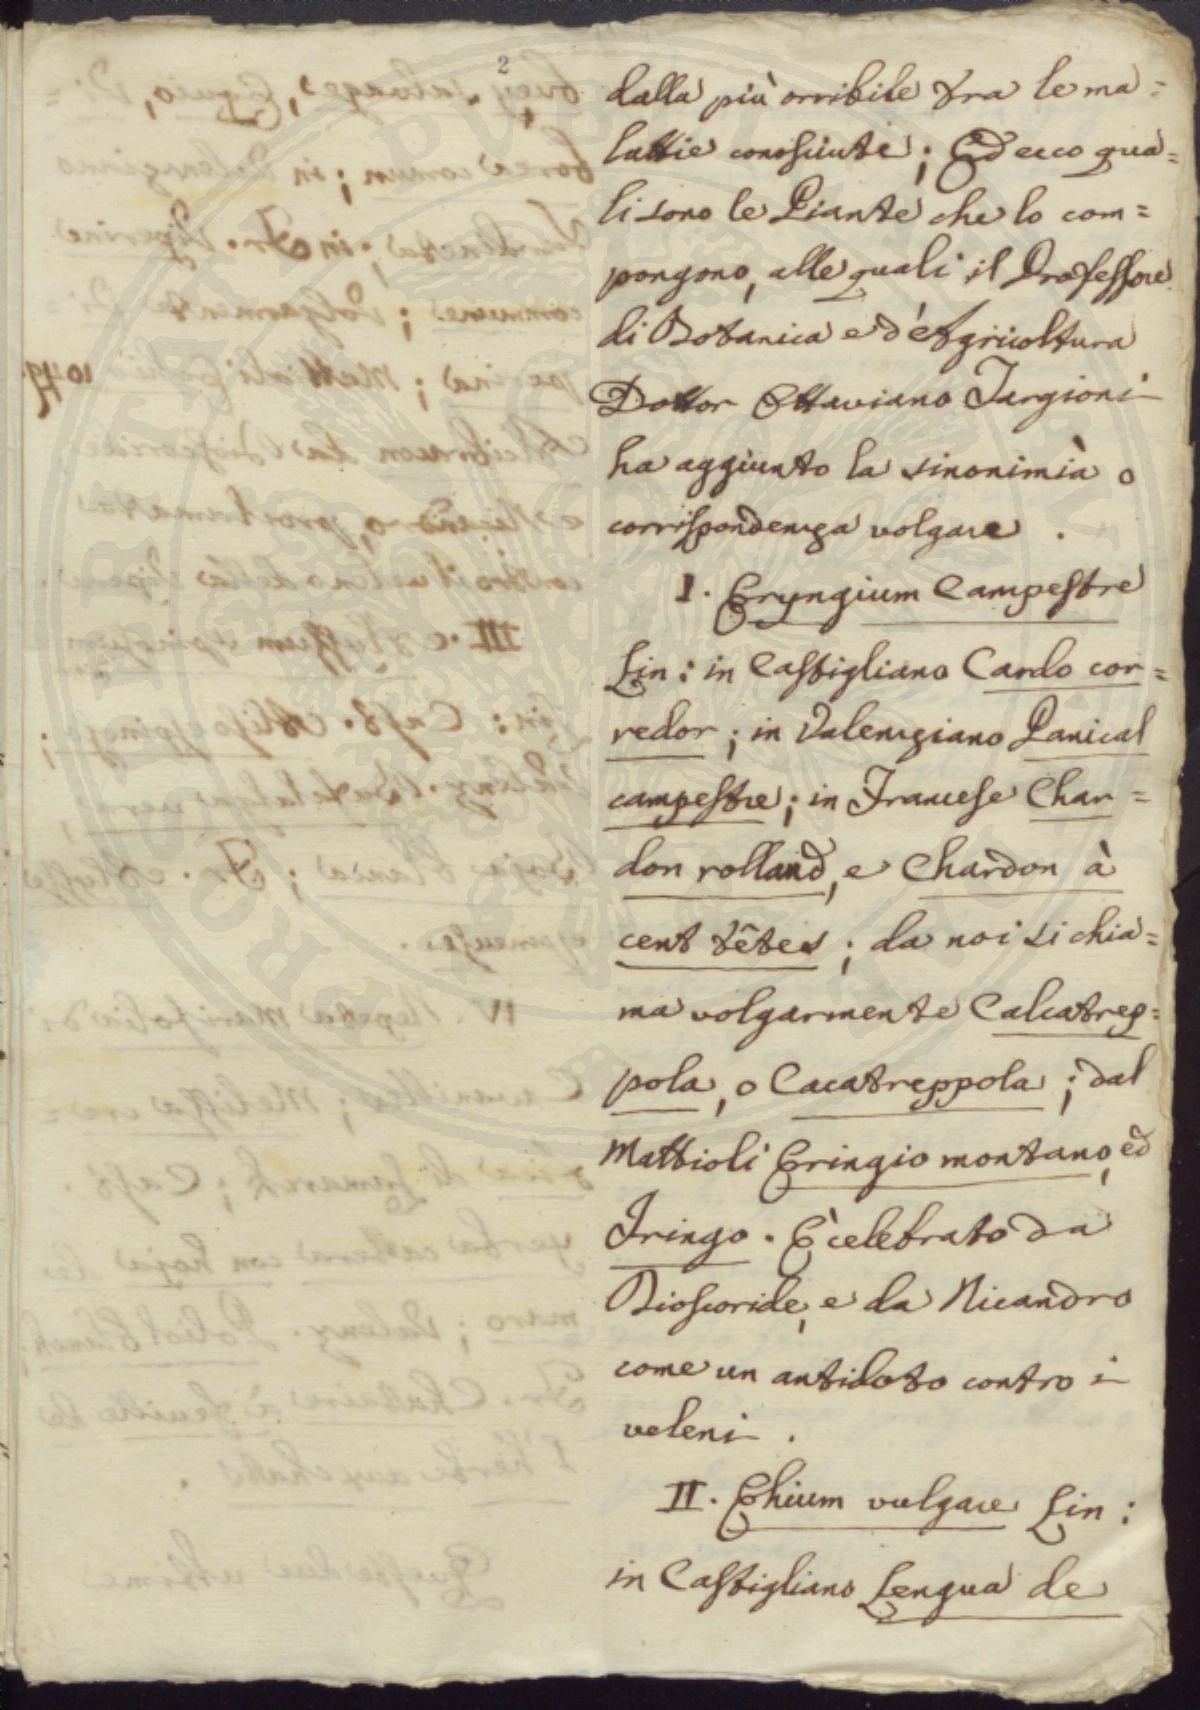 2
dalla più orribile tra le ma=
lattie conosciute; Ed ecco qua=
li sono le Piante che lo com=
pongono, alle quali il Professore
di Botanica e d'Agricoltura
Dottor Ottaviano Targioni
ha aggiunto la sinonimia o
corrispondenza volgare.
I. Eryngium Campestre
Lin: in Castigliano Cardo cor=
redor; in Valenziano Panical
campestre; in Francese Char=
don rolland, e Chardon à
cent têtes; da noi si chia=
ma volgarmente Calcatrep=
pola, o Cacatreppola; dal
Mattioli Eringio montano, ed
Iringo. È celebrato da
Dioscoride, e da Nicandro
come un antidoto contro i
veleni.
II. Ehium vulgare Lin:
in Castigliano Lengua de